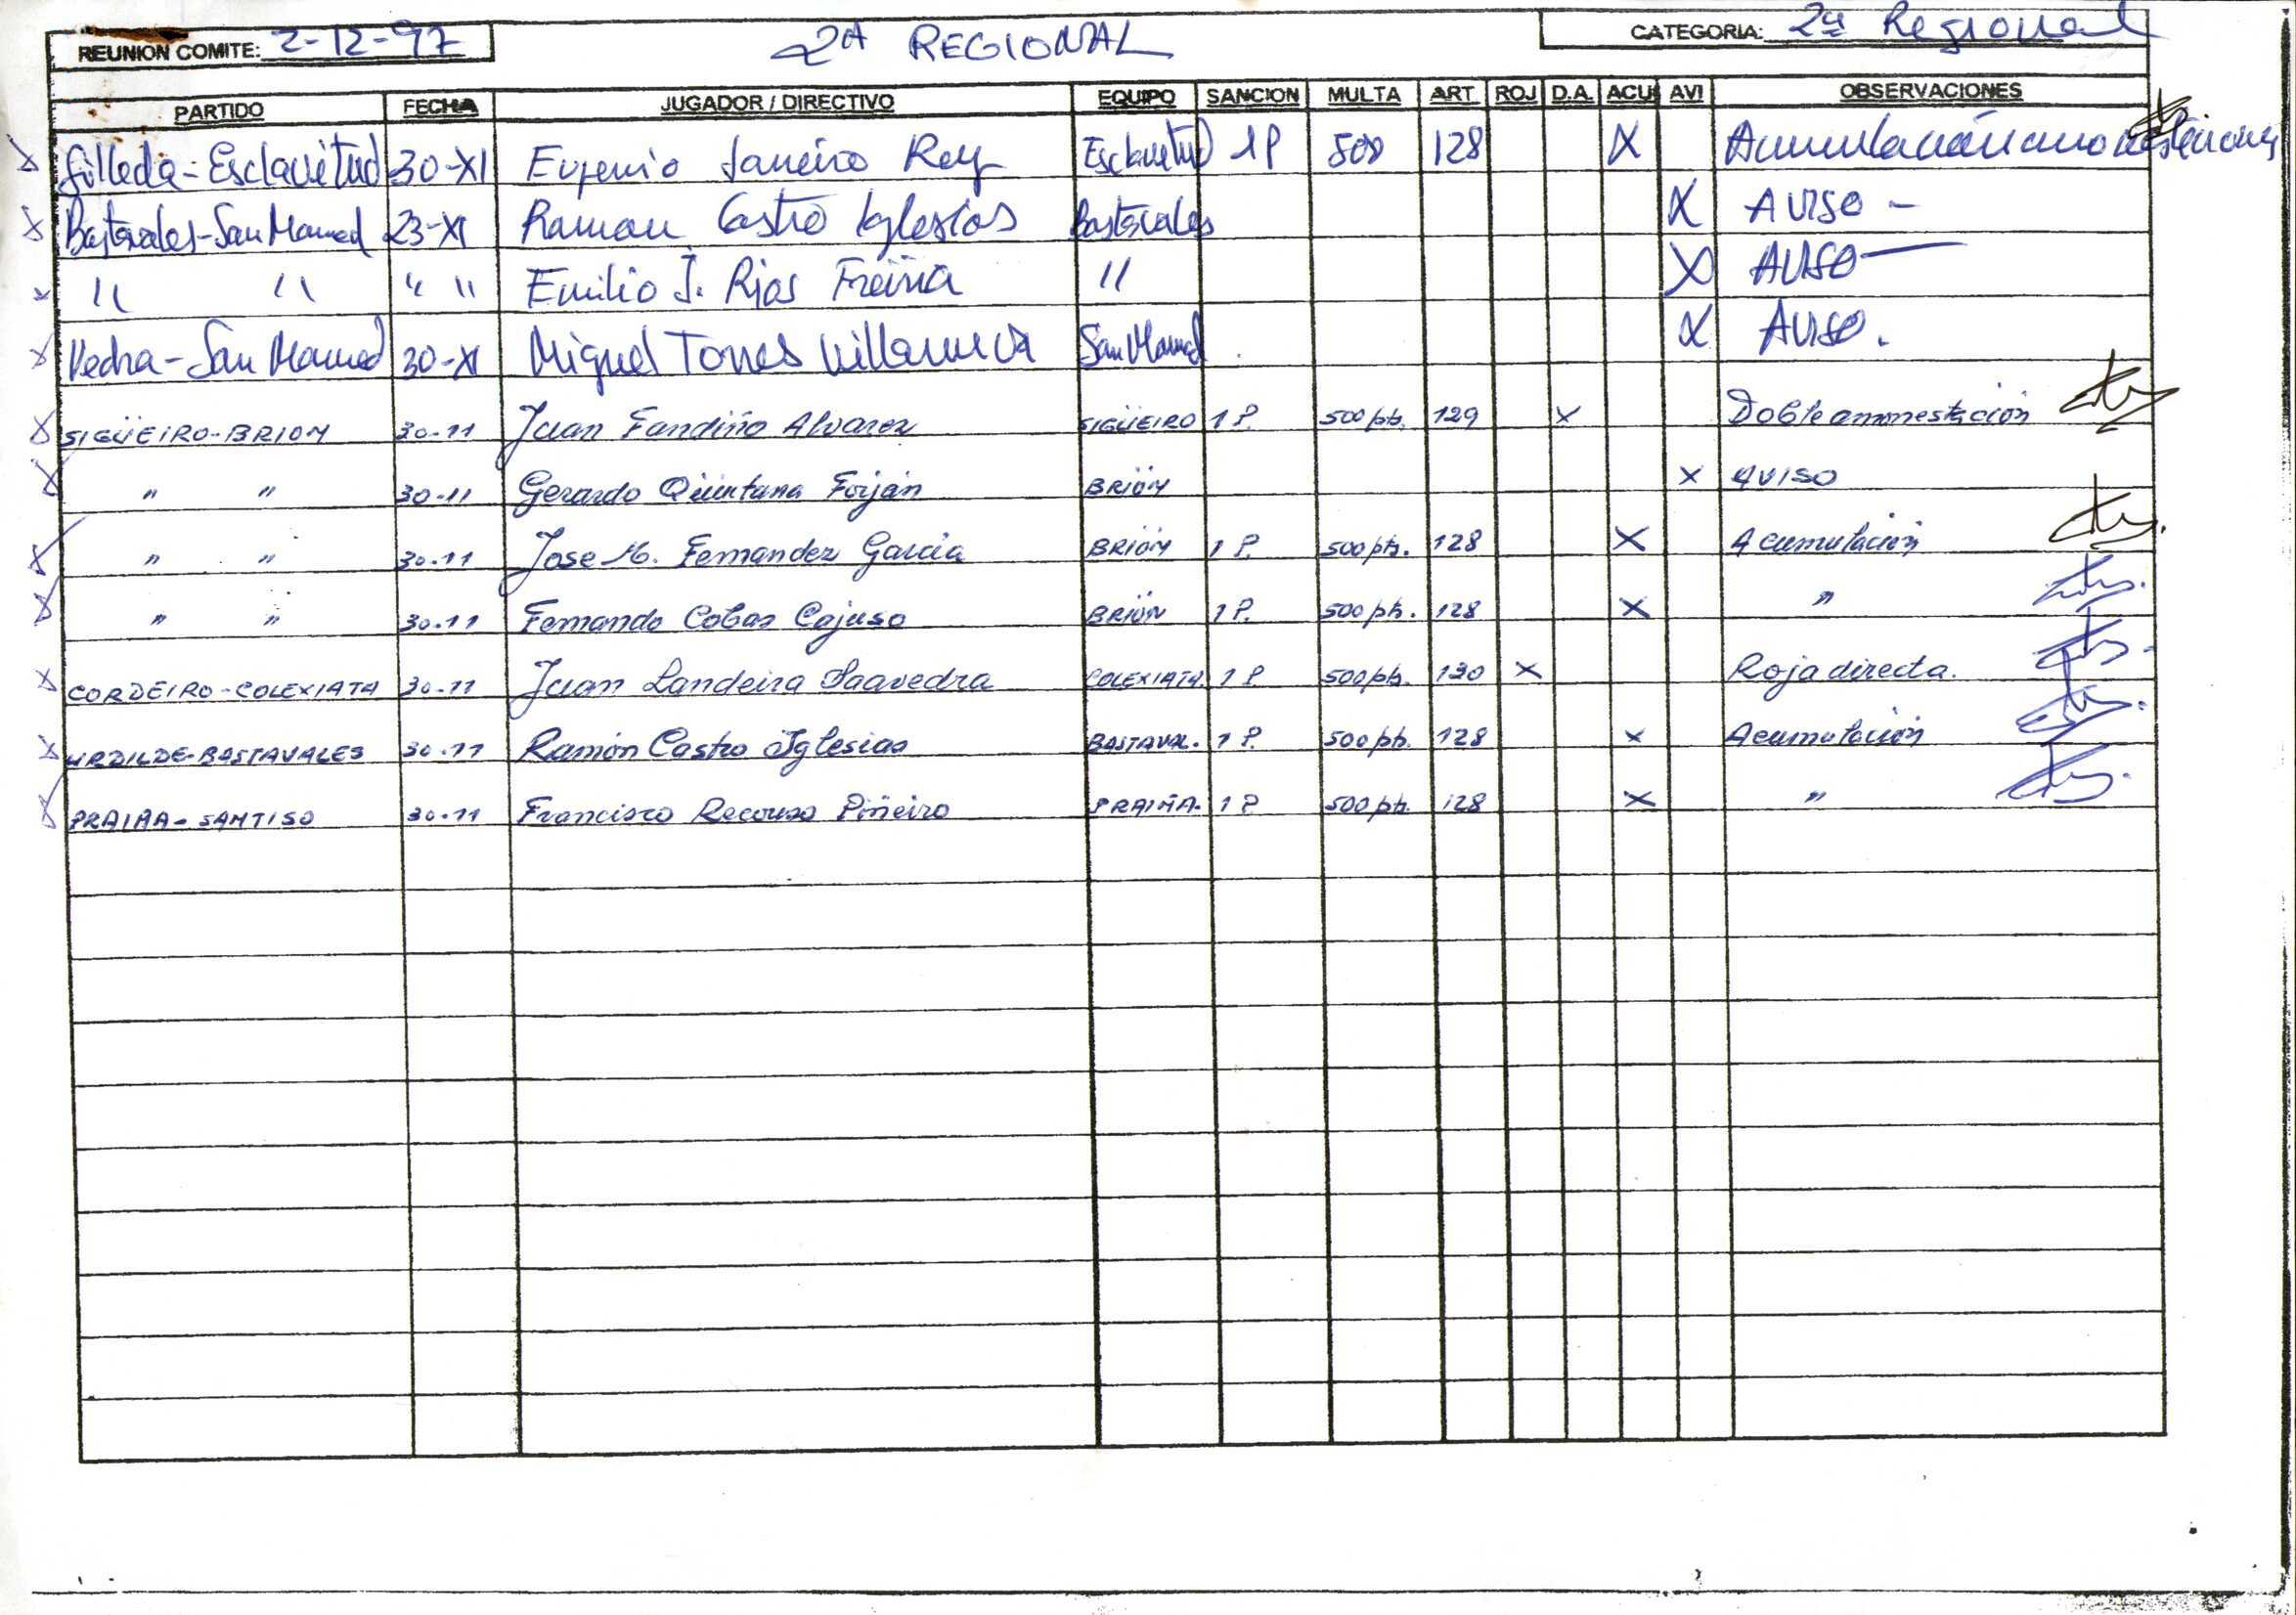 REUNION COMITE: 2-12-97 2ª REGIONAL CATEGORIA: 2ª Regional
PARTIDO FECHA JUGADOR / DIRECTIVO EQUIPO SANCION MULTA ART ROJ D.A. ACU AVI OBSERVACIONES
Esclavitud 30-XI Eugenio Janeiro Rey Esclavitud 1P 500 128 X
Bastavales-San Mamed 23-XI Ramon Castro Iglesias Bastavales X AVISO -
" " " " Emilio J. Rios Freiria " X AVISO
Vedra-San Mamed 30-XI Miguel Torres Villanueva San Mamed X AVISO.
SIGÜEIRO-BRION 30-11 Juan Fandiño Alvarez SIGÜEIRO 1 P. 500 pts. 129 X Doble amonestación
" " 30-11 Gerardo Quintana Foiján BRIÓN X AVISO
" " 30-11 Jose M. Fernandez Garcia BRIÓN 1 P. 500 pts. 128 X Acumulación
" " 30-11 Fernando Cobas Cajuso BRIÓN 1 P. 500 pts. 128 X "
CORDEIRO-COLEXIATA 30-11 Juan Landeira Saavedra COLEXIATA 1 P 500 pts. 130 X Roja directa.
URDILDE-BASTAVALES 30-11 Ramón Castro Iglesias BASTAVAL. 1 P. 500 pts. 128 X Acumulación
PRAIÑA-SANTISO 30-11 Francisco Recouso Piñeiro PRAIÑA. 1 P 500 pts. 128 X "